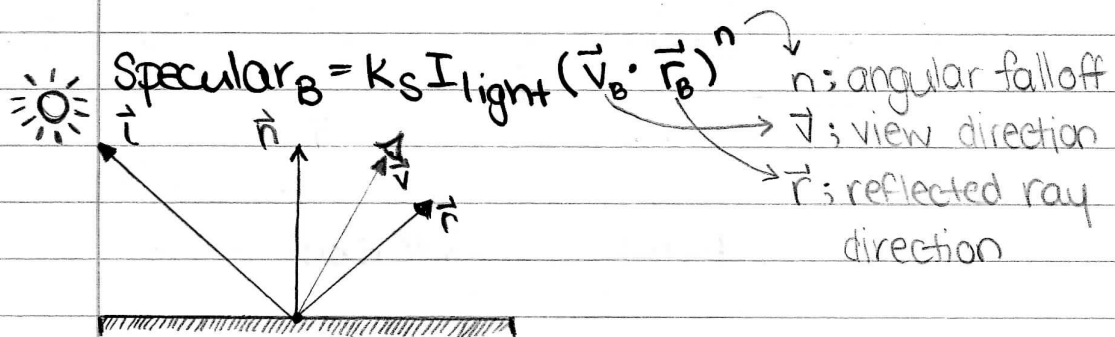 Specular_B = K_S I_light (v⃗_B · r⃗_B)^n
n; angular falloff
v⃗; view direction
r⃗; reflected ray
direction
l⃗
n⃗
v⃗
r⃗